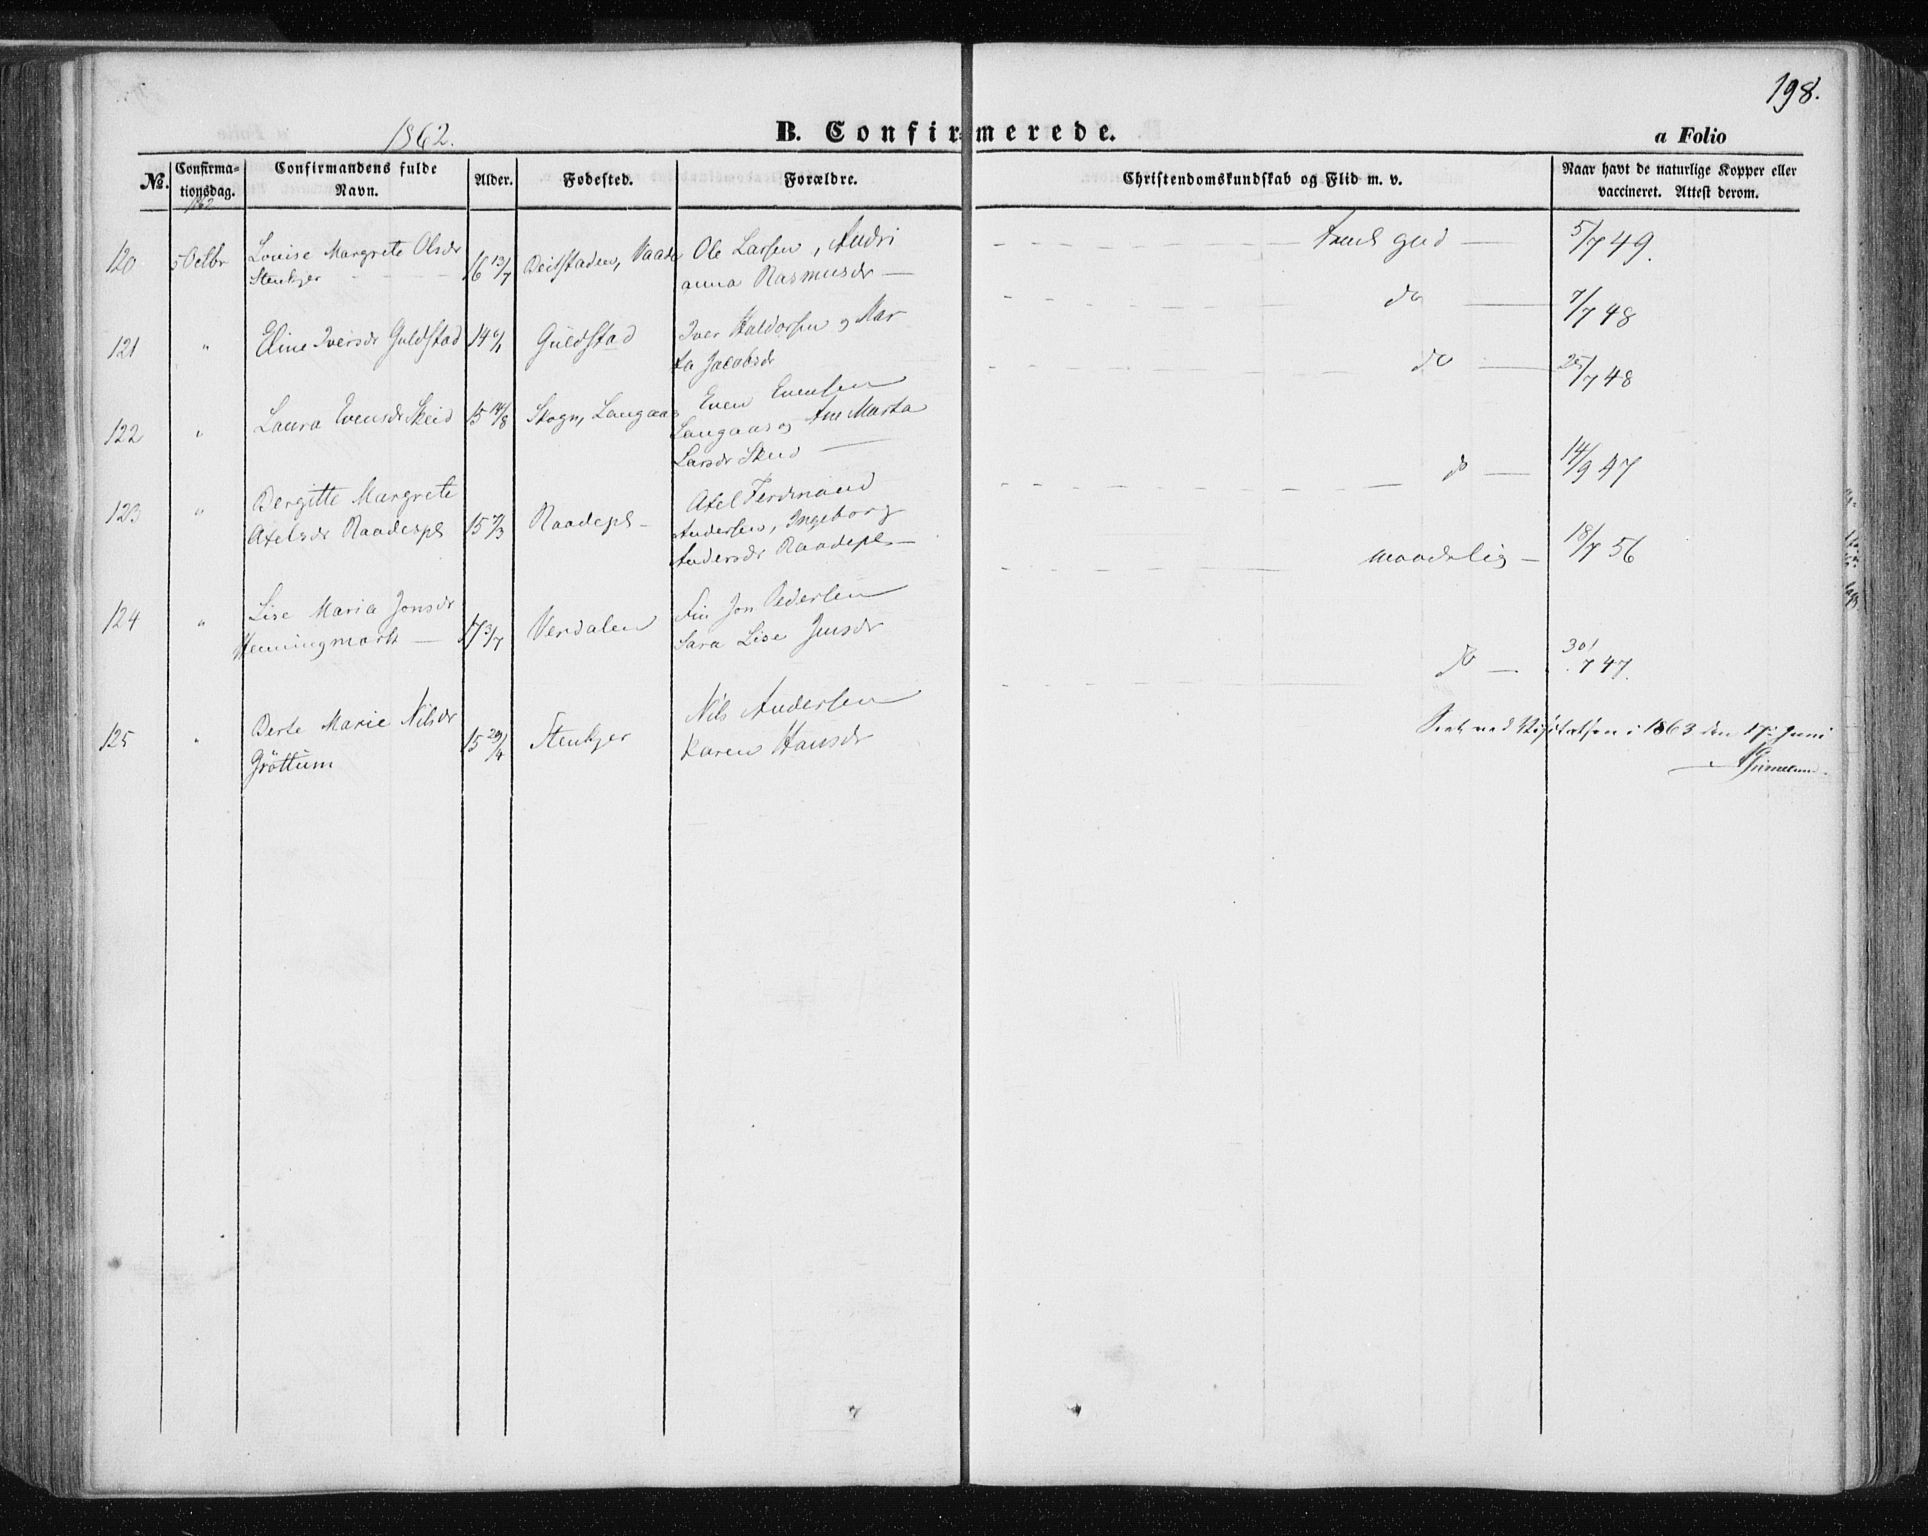 198.
1862.
B. Confirmerede.
a Folio
No.
Confirma-
tionsdag.
Confirmandens fulde
Navn.
Alder.
Fødested.
Forældre.
Christendomskundskab og Flid m. v.
Naar havt de naturlige Kopper eller
vaccineret. Attest derom.
1862
120 5 Octbr Louise Margrete Olsdr 16 13/7 Beitstaden, Ole Larsen, Andri
Stenkjer anna Rasmusdr
gud 5/7 49.
121 " Eline Iversdr Guldstad 14 6/1 Guldstad Iver Haldorsen og Mar
ta Jacobsdr
do 7/7 48
122 " Laura Evensdr Skeid 15 14/8 Skogn, Langaas Even Evensen
Langaas og Ane Marta
Larsdr Skeid
do 25/7 48
123 " Bergitte Margrete Axel Ferdinand
Axelsdr Raadespl 15 Raadepl Andersen, Ingeborg
Andersdr Raadepl
do 14/9 47
124 " Lise Maria Jonsdr 17 3/7 Verdalen Jon Pedersen
Henningmark Sara Lise Jensdr
maadelig 18/7 56
125 " Berte Marie Nilsdr 15 29/4 Stenkjer Nils Andersen
Grøttum Karen Hansdr
do 30/7 47.
Seet ved Visitatsen i 1863 den 17de Juni